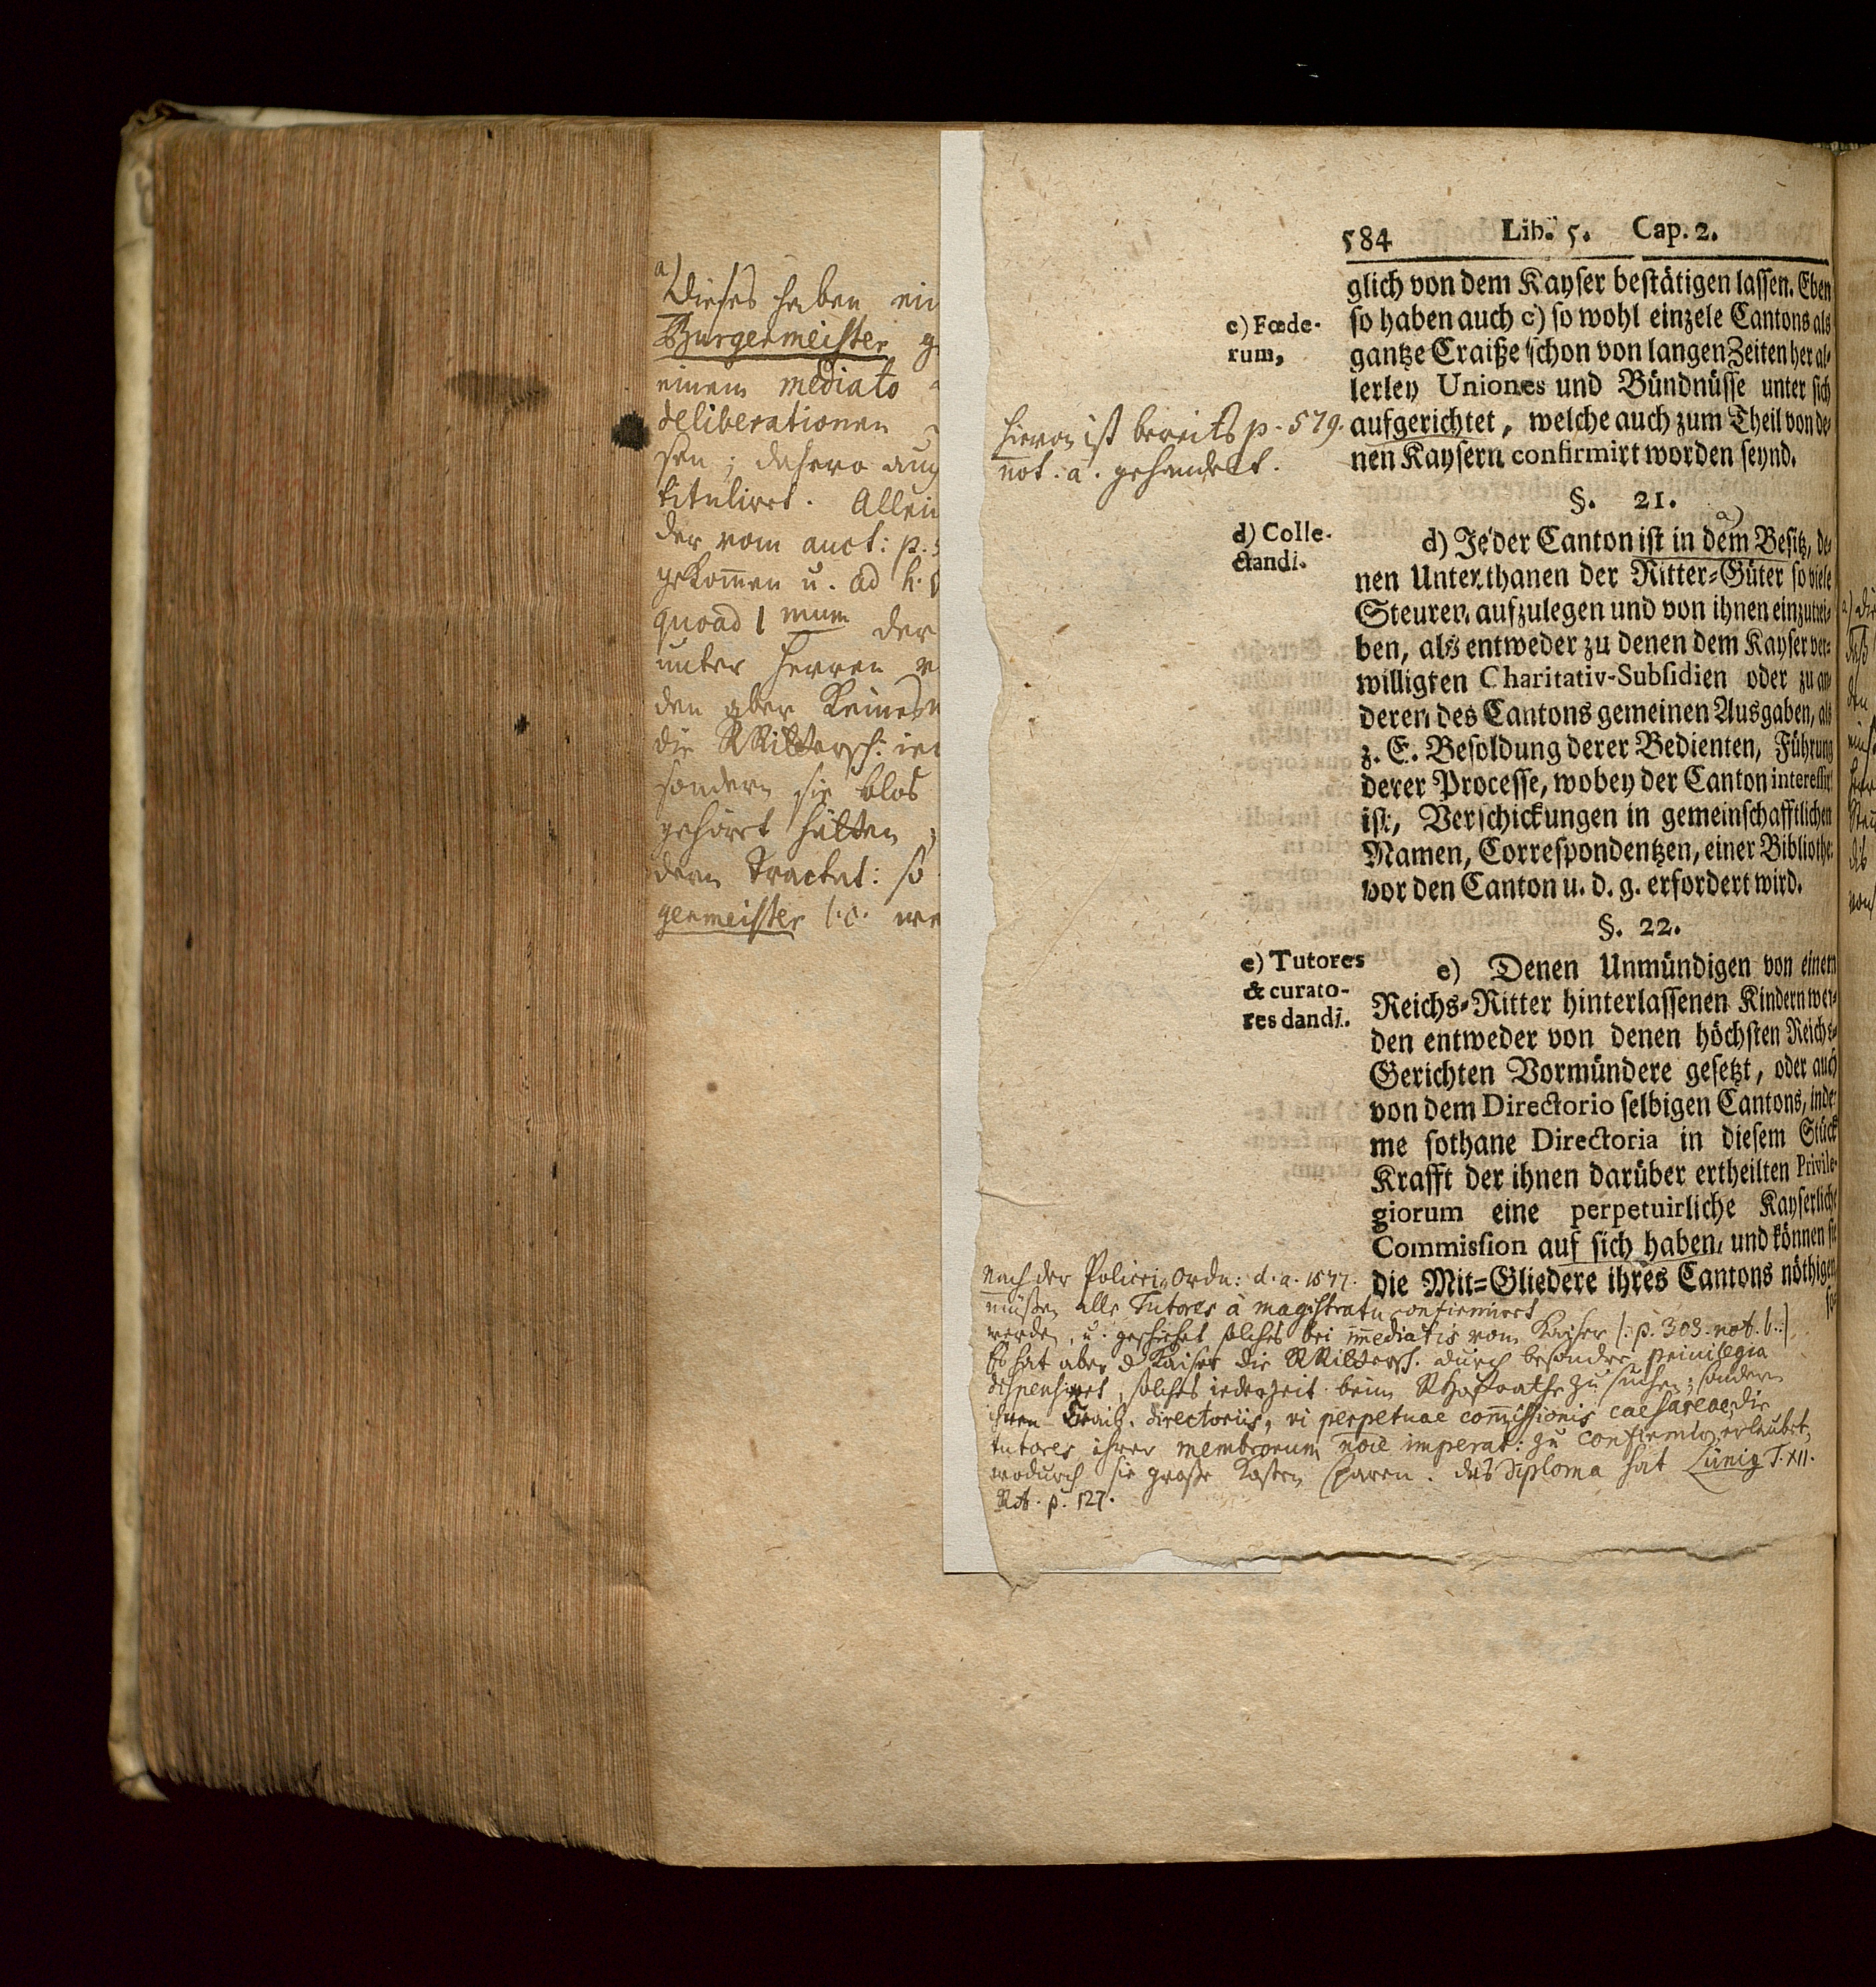 a)
Dieses haben ein
Burgermeister g
einem mediato
deliberationen
sen; dahero auch
titulirt. Allein
der vom auct: p. 5
gekommen u. ad h.
quoad 1 mum der
unter Herren
den aber Keines
die RRittersch:
sondern sie blos
gehört hätten,
dern Tractat: so
germeister l. c.
584 Lib. 5. Cap. 2.
glich von dem Kayser bestätigen lassen. Eben
c) Fœde-
rum,
so haben auch c) so wohl einzele Cantons als
gantze Craiße schon von langen Zeiten her al-
lerley Uniones und Bündnüsse unter sich
aufgerichtet, welche auch zum Theil von de-
nen Kaysern confirmirt worden seynd.
hievon ist bereits p. 579.
not. a. gehandelt.
§. 21.
a)
d) Colle-
ctandi.
d) Jeder Canton ist in dem Besitz, de-
nen Unterthanen der Ritter-Güter so viele
Steuren aufzulegen und von ihnen einzutrei-
ben, als entweder zu denen dem Kayser ver-
willigten Charitativ-Subsidien oder zu an-
deren des Cantons gemeinen Ausgaben, als
z. E. Besoldung derer Bedienten, Führung
derer Processe, wobey der Canton interessirt
ist, Verschickungen in gemeinschafftlichen
Namen, Correspondentzen, einer Bibliothec
vor den Canton u. d. g. erfordert wird.
§. 22.
e) Tutores
& curato-
res dandi.
e) Denen Unmündigen von einem
Reichs-Ritter hinterlassenen Kindern wer-
den entweder von denen höchsten Reichs-
Gerichten Vormündere gesetzt, oder auch
von dem Directorio selbigen Cantons, inde-
me sothane Directoria in diesem Stück
Krafft der ihnen darüber ertheilten Privile-
giorum eine perpetuirliche Kayserliche
Commission auf sich haben, und können sie
die Mit-Gliedere ihres Cantons nöthigen
Nach der Policei-Ordn: d. a. 1577.
müßen alle Tutores à magistratu confirmirt
werden, u. geschiehet solches bei immediatis vom Kaiser |: p. 303. not. b. :|
Es hat aber d Kaiser die RRittersch. durch besondre privilegia
dispensiret, solches iederzeit beim RHofrathe zu suchen; sondern
ihren Craiß. directoriis, vi perpetuae commissionis caesareae, die
tutores ihrer membrorum noie imperat: zu confirmiren, erlaubet,
wodurch sie große Kosten sparen. das Diploma hat Lünig T. XII.
RA. p. 127.